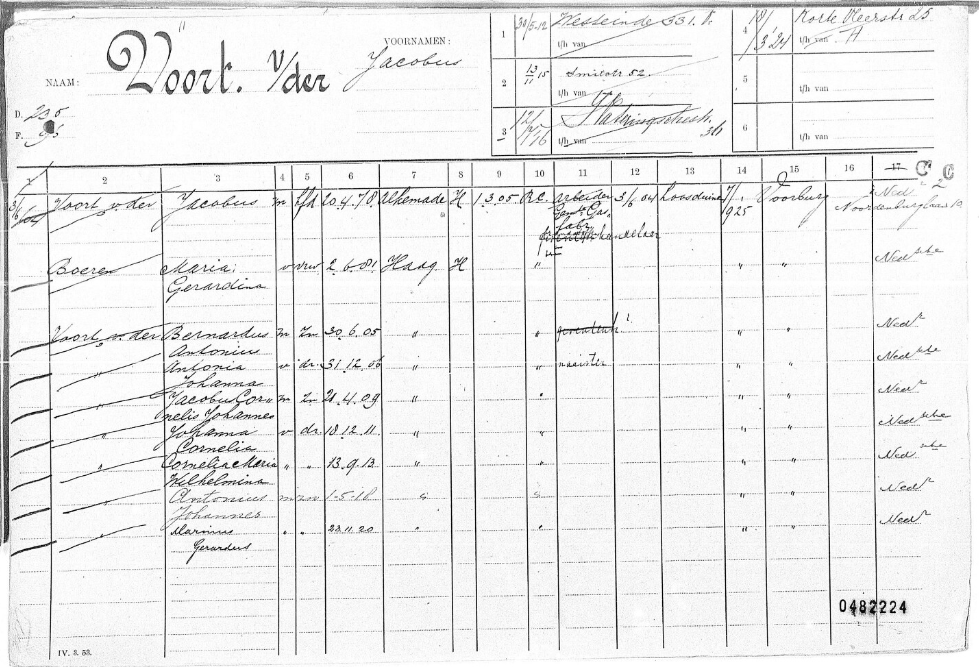 NAAM: Voort. v/der
VOORNAMEN: Jacobus
D. 235
F. 95
1 30/5.12 Westeinde 331.
t/h van
2 13/11 15 Smidstr 52.
t/h van
3 12/1
t/h van 36
4 19/3 24 Korte Heerstr 25
t/h van A
5
t/h van
6
t/h van
1 2 3 4 5 6 7 8 9 10 11 12 13 14 15 16 17
Voort v. der Jacobus m hfd 20.4.78 Alkemade H 1.3.05 R.C. arbeider 3/6 04 Loosduinen 7/1 1925 Voorburg Nedr
Gem. Gas
fabr
handelaar
Boeren Maria v vrw 2.6.81 Haag H " " " Nedsche
Gerardina
Voort v. der Bernardus m Zn 30.6.05 " " " " Nedr
Antonius
" Antonia v dr 31.12.06 " " naaister " " Nedsche
Johanna
" Jacobus Cor= m Zn 21.4.09 " " " " Nedr
nelis Johannes
" Johanna v dr. 18.12.11 " " " " Nedsche
Cornelia
" Cornelia Maria " " 13.9.13 " " " " Nedsche
Wilhelmina
" Antonius m zn 1-5-18 " " " " Nedr
Johannes
" Marinus " " 23.11.20 " " " " Nedr
Gerardus
0482224
IV. 3. 53.